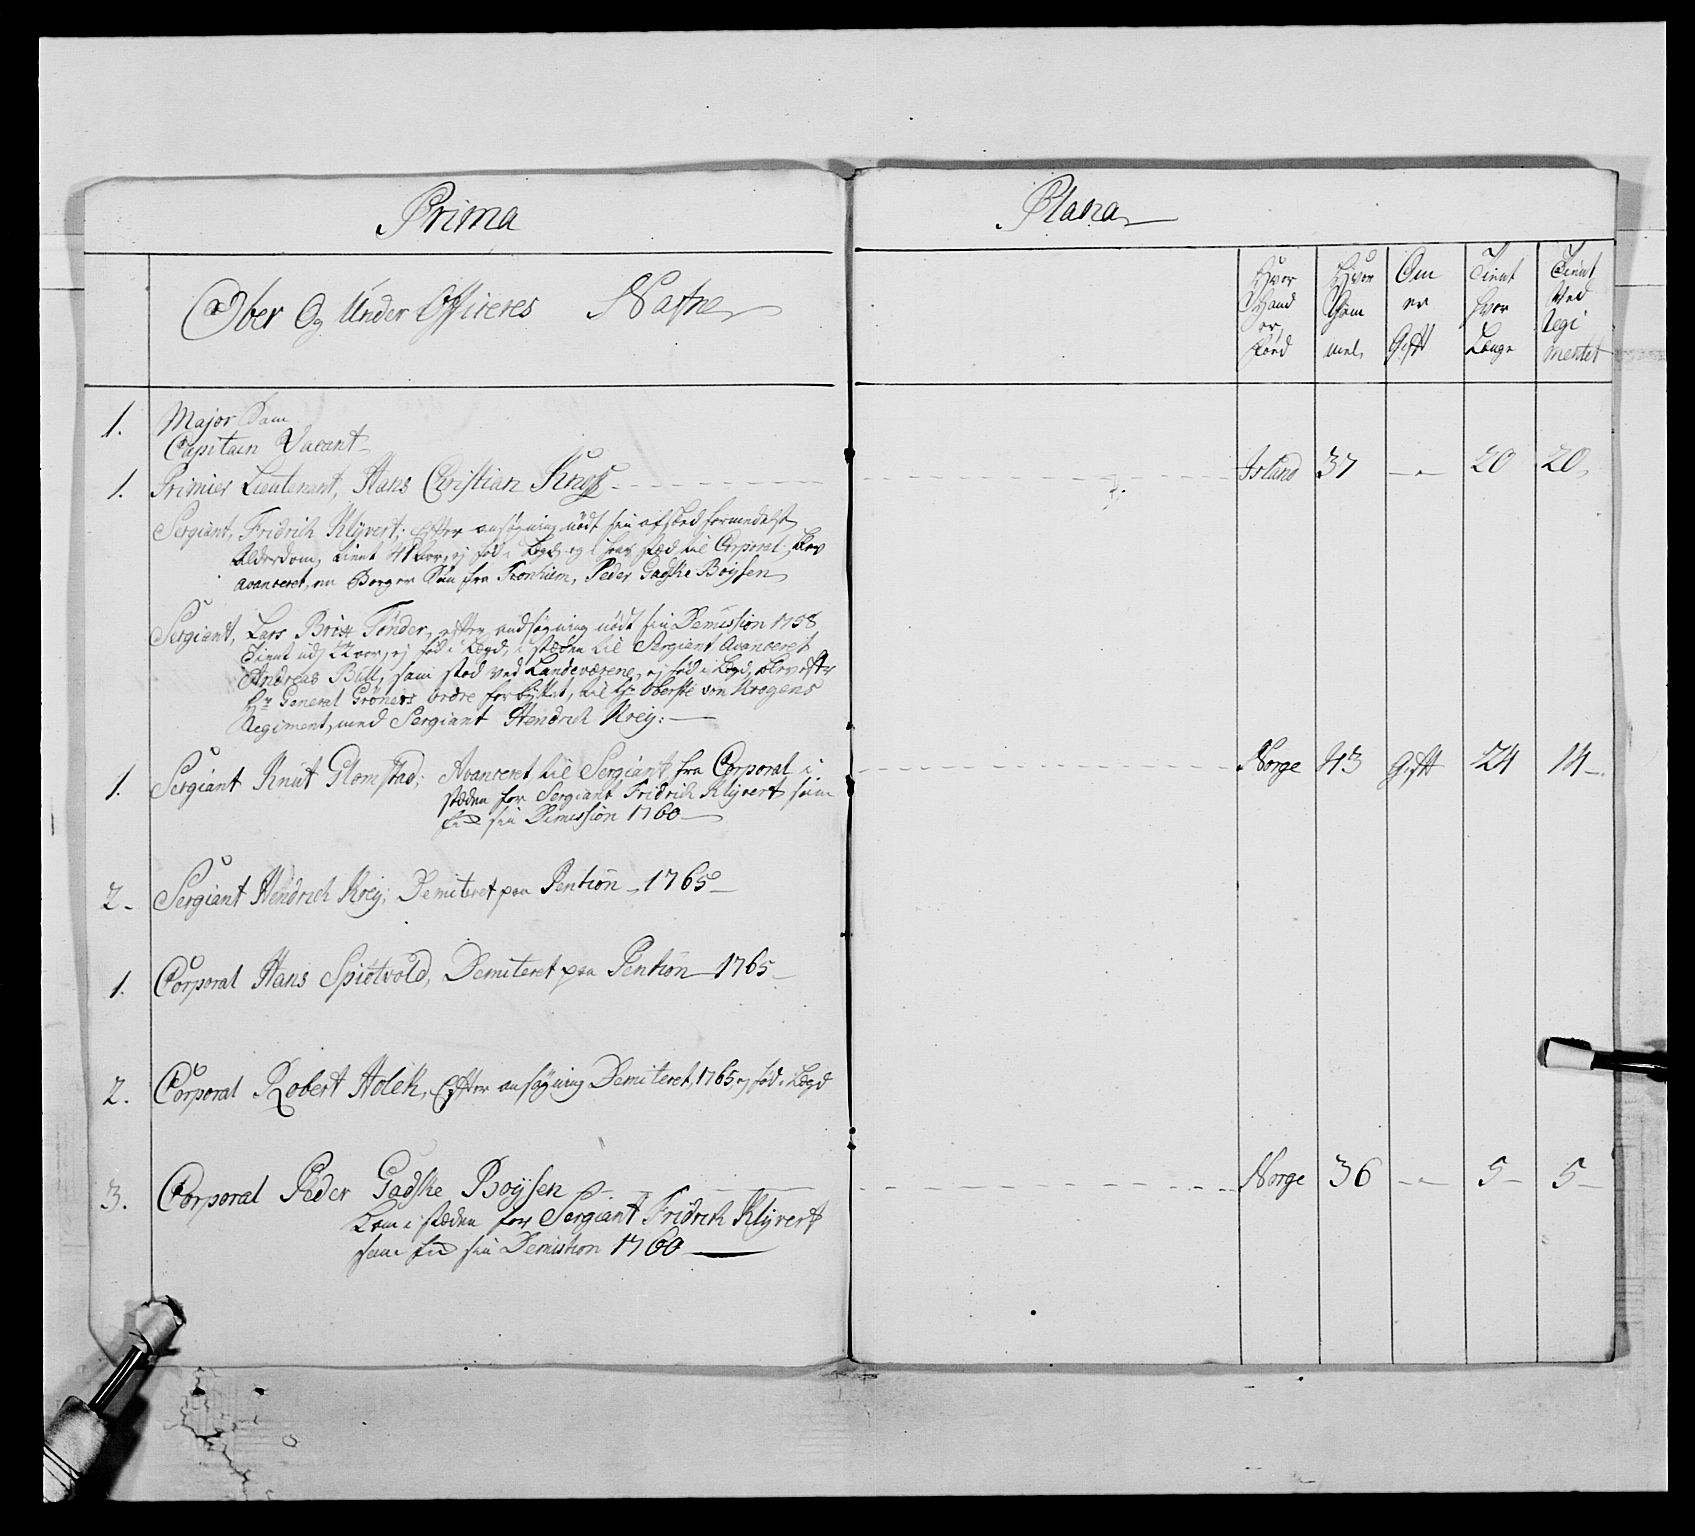 Prima Plana
Ober Og Under Officeres Nafne
Hvor Hand er fød
Hvor Gam mel
Om er Gift
Tient hvor Længe
Tient Ved Regi mentet
1. Major Dam
Capitain Vacant
1. Primier Lieutenant, Hans Christian Krug Island 37 — 20 20
Sergiant, Fridrich Klÿvert; Efter ansøgning nødt sin afsked formedelst
Alderdom, tient 41 Aar, ej fød i Legd, og i hans stæd til Corporal blev
avanceret, en Borger Søn fra Tronhiem, Peder Gadske Boÿsen
Sergiant, Lars Brix Tønder, efter andsøgning nødt sin Demission 1758
Tient udj Aar, ej fød i Legd, i stæden til Sergiant Avanceret
Andreas Bull, som stod ved Landeværgene, ej fød i Legd, blev efter
Hr General Grøners ordre forbÿttet, til Hr: Oberste von Krogens
Regiment, med Sergiant Hendrich Kreÿ: —
1. Sergiant Knut Glomstad; Avanceret til Sergiant fra Corporal i Norge 43 Gift 24 14
stæden for Sergiant Fridrich Klÿvert, som
fik sin Demission 1760
2. Sergiant Hendrich Kreÿ; Demiteret paa Pention 1765
1. Corporal Hans Spiøtvold, Demiteret paa Pention 1765
2. Corporal Robert Holck, Efter ansøgning Demiteret 1765, ej fød i Legd
3. Corporal Peder Gadske Boÿsen Norge 36 — 5 5
kom i stæden for Sergiant Fridrich Klÿvert
som fik sin Demistion 1760